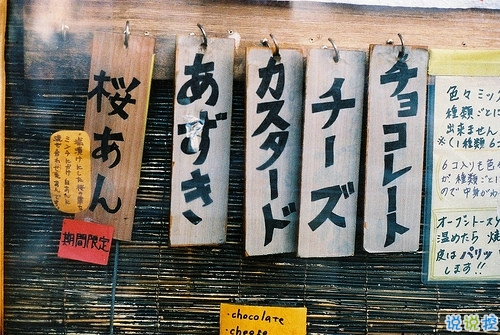 桜あん
期間限定
あずき
カスタード
チーズ
チョコレート
色々ミッ
種類ごとに
出来ません
※(1種類6コ
6コ入りも色
が種類ごと
ので中身が
オーブントース
温めたら 焼
度はパリッ
します!!
・chocolate
・cheese
说说控